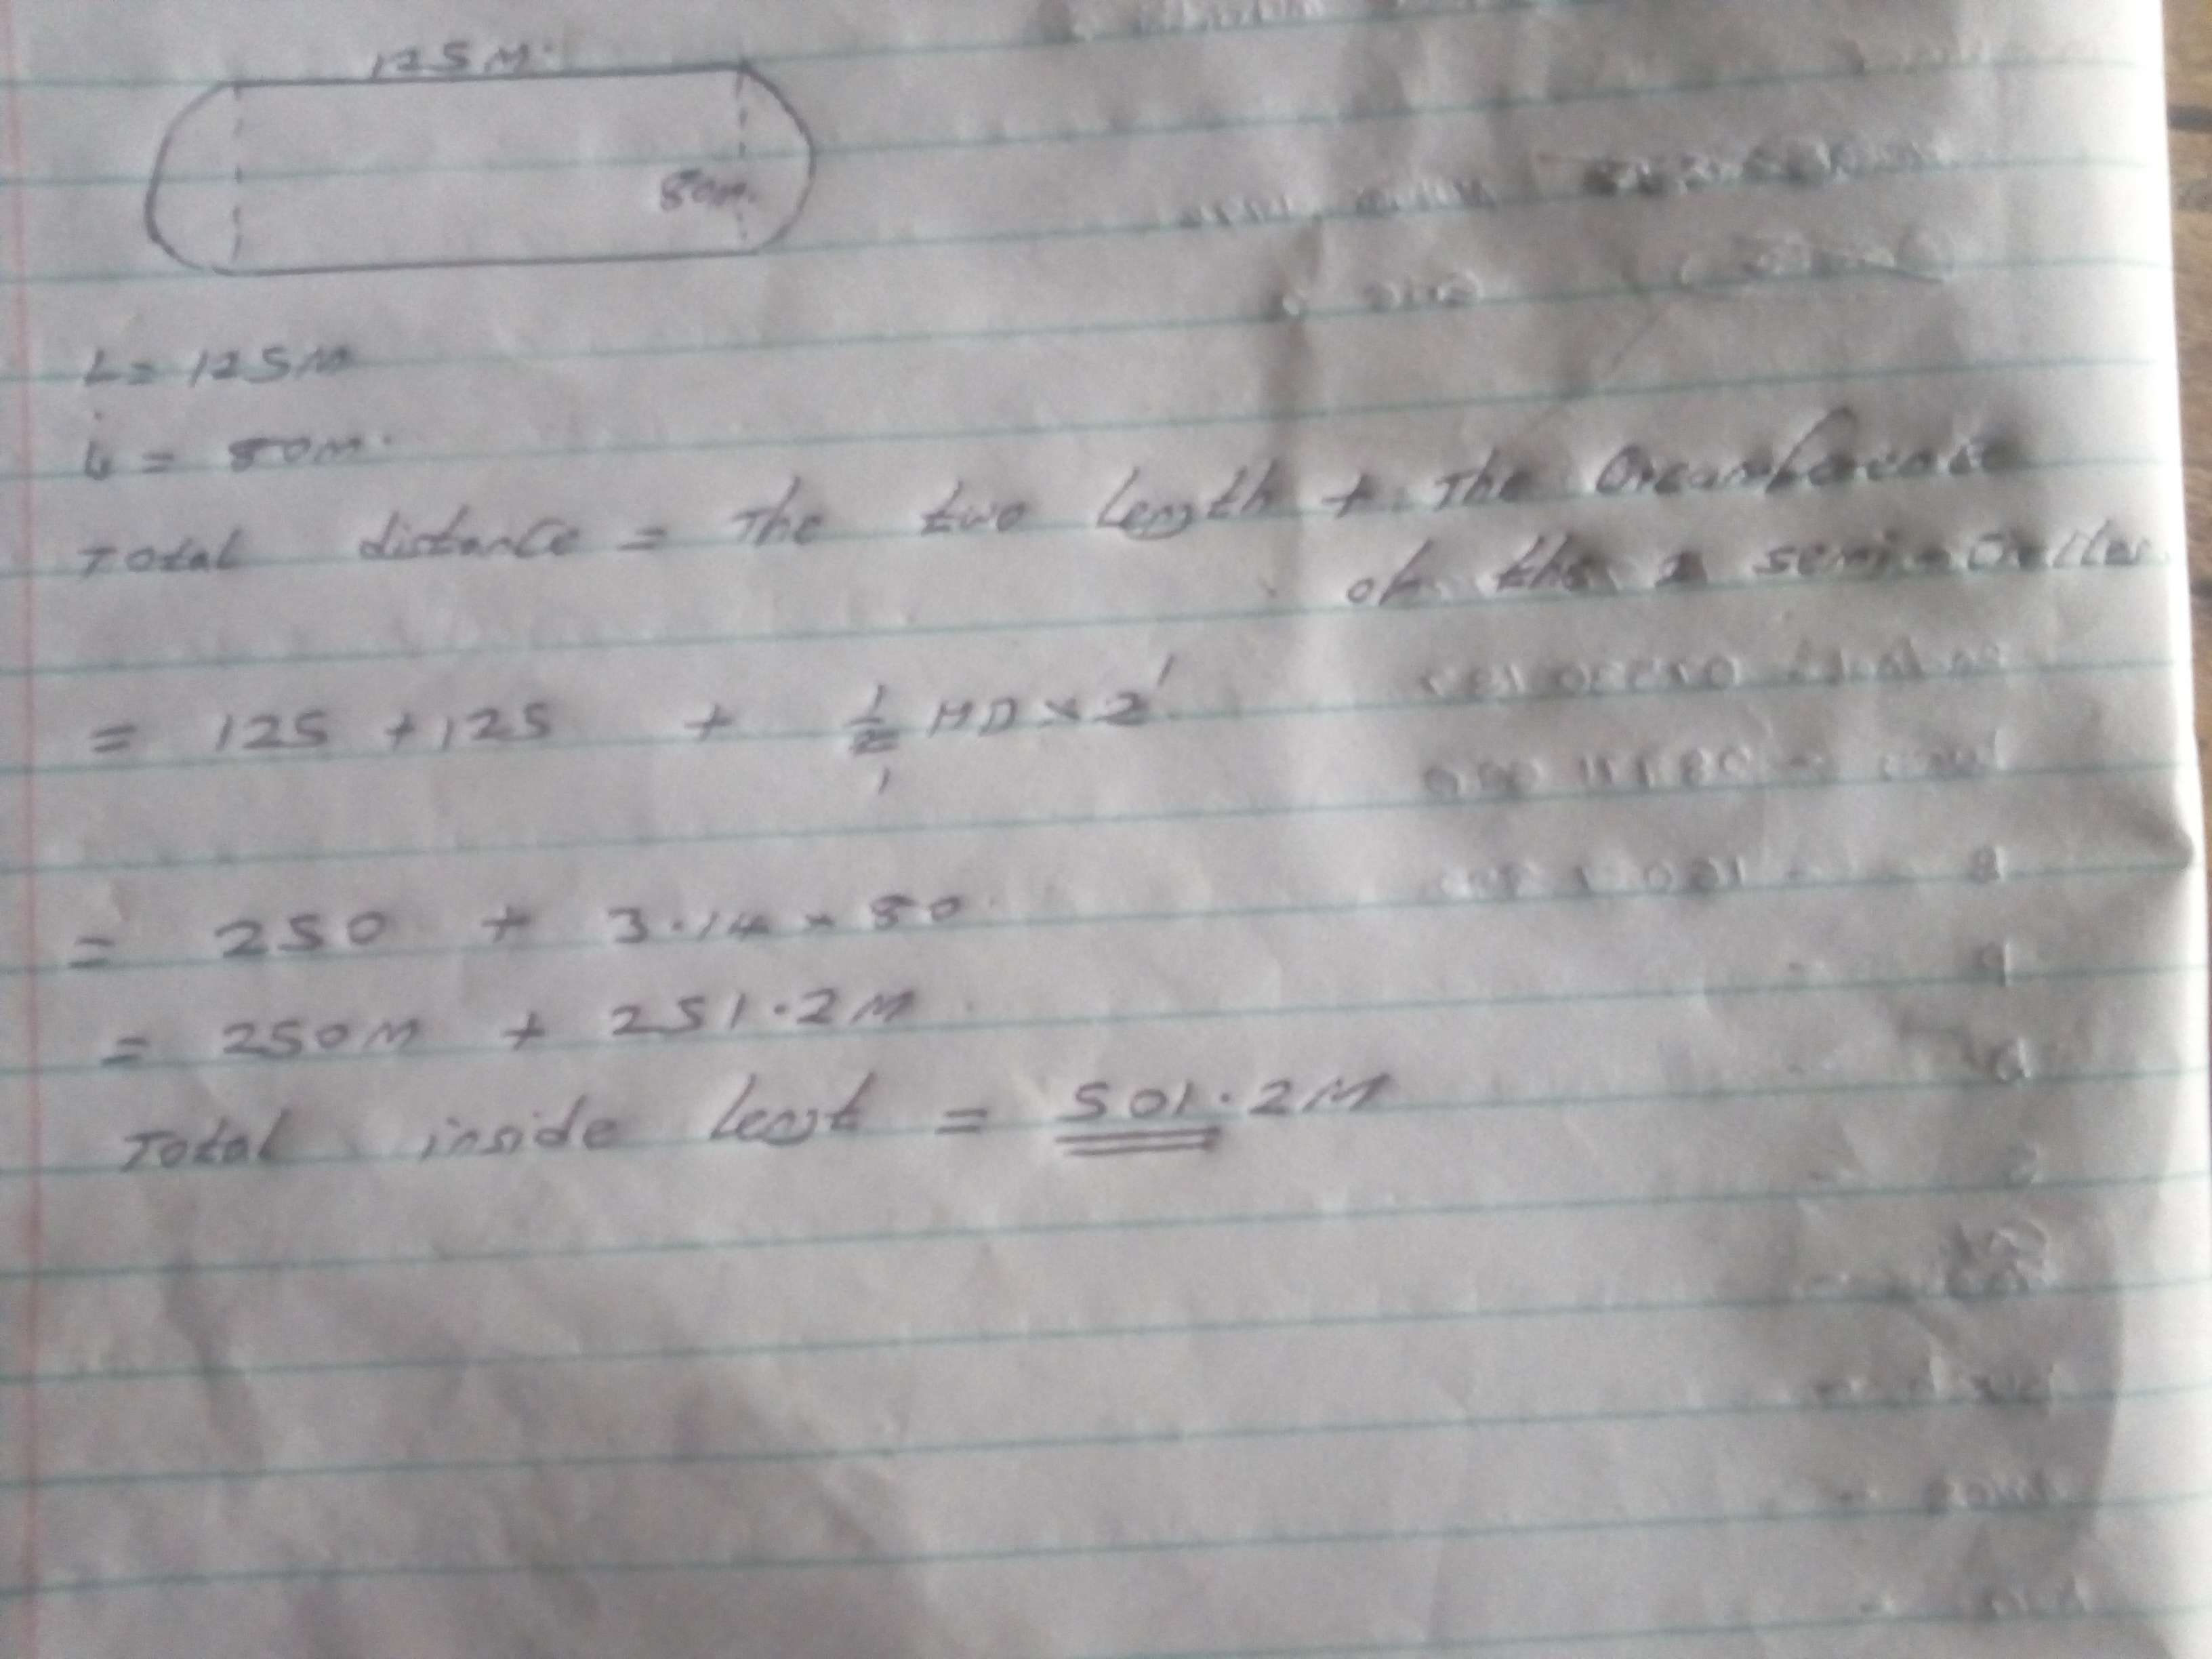 125M.
80m.
L= 125M
b = 80m.
Total distance = The two length + The Circumference
of the 2 semi-Circles.
= 125 +125 + 1/2 ΠD x 2 1
1
= 250 + 3.14 x 80.
= 250M + 251.2M.
Total inside lengt = 501.2M